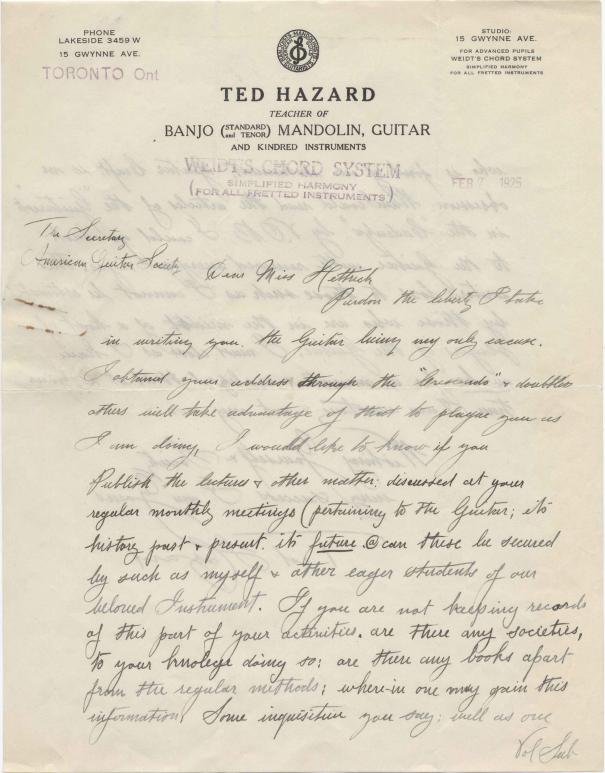 PHONE
LAKESIDE 3459 W
15 GWYNNE AVE.
TORONTO Ont
STUDIO:
15 GWYNNE AVE.
FOR ADVANCED PUPILS
WEIDT'S CHORD SYSTEM
SIMPLIFIED HARMONY
FOR ALL FRETTED INSTRUMENTS
TED HAZARD
TEACHER OF
BANJO (STANDARD and TENOR) MANDOLIN, GUITAR
AND KINDRED INSTRUMENTS
WEIDT'S CHORD SYSTEM
(SIMPLIFIED HARMONY
FOR ALL FRETTED INSTRUMENTS)
FEB 7 1925
The Secretary
American Guitar Society
Dear Miss Hettrick
Pardon the liberty I take
in writing you. the Guitar being my only excuse.
I obtained your address through the "Crescendo" & doubtless
others will take advantage of that to plague you as
I am doing, I would like to know if you
Publish the lectures & other matter; discussed at your
regular monthly meetings (pertaining to the Guitar; its
history past & present. its future. @ can these be secured
by such as myself & other eager students of our
beloved Instrument. If you are not keeping records
of this part of your activities. are there any societies,
to your knolege doing so; are there any books apart
from the regular methods; where-in one may gain this
information. Some inquisition you say; well as one